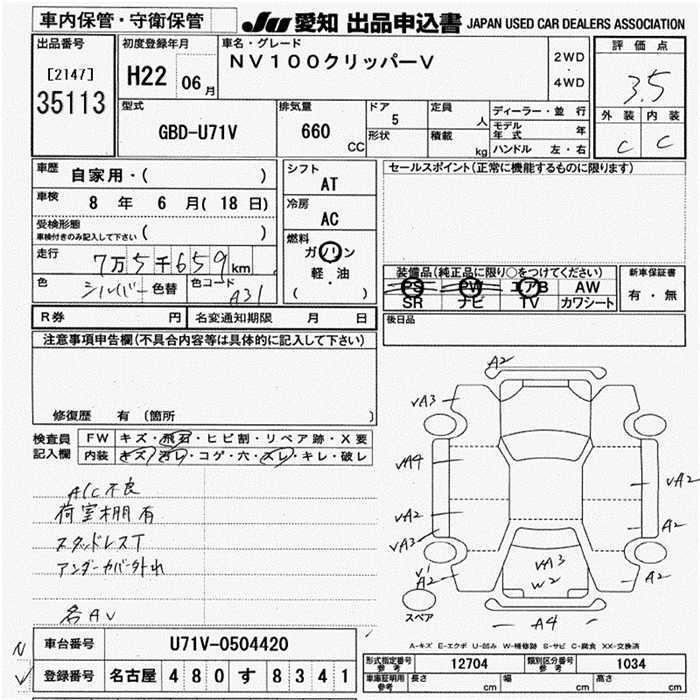 車内保管・守衛保管
JU 愛知 出品申込書 JAPAN USED CAR DEALERS ASSOCIATION
出品番号
[2147]
35113
初度登録年月
H22 06月
車名・グレード
NV100クリッパーV
2WD
・
4WD
評価点
3.5
外装 内装
C C
型式
GBD-U71V
排気量
660 CC
ドア
5
形状
定員
人
積載
kg
ディーラー・並行
モデル年式 年
ハンドル 左・右
車歴 自家用・( )
車検 8年 6月(18日)
受検形態
車検付きのみ記入して下さい ( )
走行 7万5千659km
色 シルバー 色替 色コード A31
シフト
AT
冷房
AC
燃料
ガソリン
軽・油
( )
セールスポイント(正常に機能するものに限ります)
装備品(純正品に限り○をつけてください)
PS PW エアB AW
SR ナビ TV カワシート
新車保証書
有・無
後日品
R券 円 名変通知期限 月 日
注意事項申告欄(不具合内容等は具体的に記入して下さい)
修復歴 有 (箇所 )
検査員記入欄
FW キズ・飛石・ヒビ割・リペア跡・X要
内装 キズ・汚レ・コゲ・穴・スレ・キレ・破レ
A/C不良
荷室棚有
スタッドレスT
アンダーカバー外れ
各AV
A2
√A3
√A4
√A2
√A3
A2
√A2
A2
A2
√A3
W2
A4
スペア
A-キズ E-エクボ U-凹み W-補修跡 S-サビ C-腐食 XX-交換済
車台番号 U71V-0504420
登録番号 名古屋 480 す 8341
型式指定番号 参考 12704 類別区分番号 参考 1034
車庫証明用 参考 長さ cm 幅 cm 高さ cm